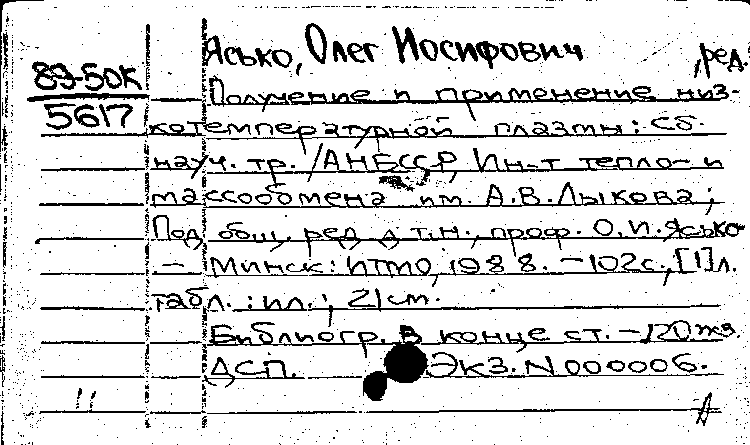 Ясько, Олег Иосифович
, ред.
89-50К
5617
Получение и применение низ-
котемпературной плазмы: Сб.
науч. тр. /АН БССР, Ин-т тепло- и
массообмена им. А.В.Лыкова;
Под общ. ред. д.т.н., проф. О.И.Ясько
.- Минск: ИТМО, 1988. - 102с., [1]л.
табл. : ил.; 21 см.
Библиогр. в конце ст. - 120 экз.
ДСП. Экз. N 000006.